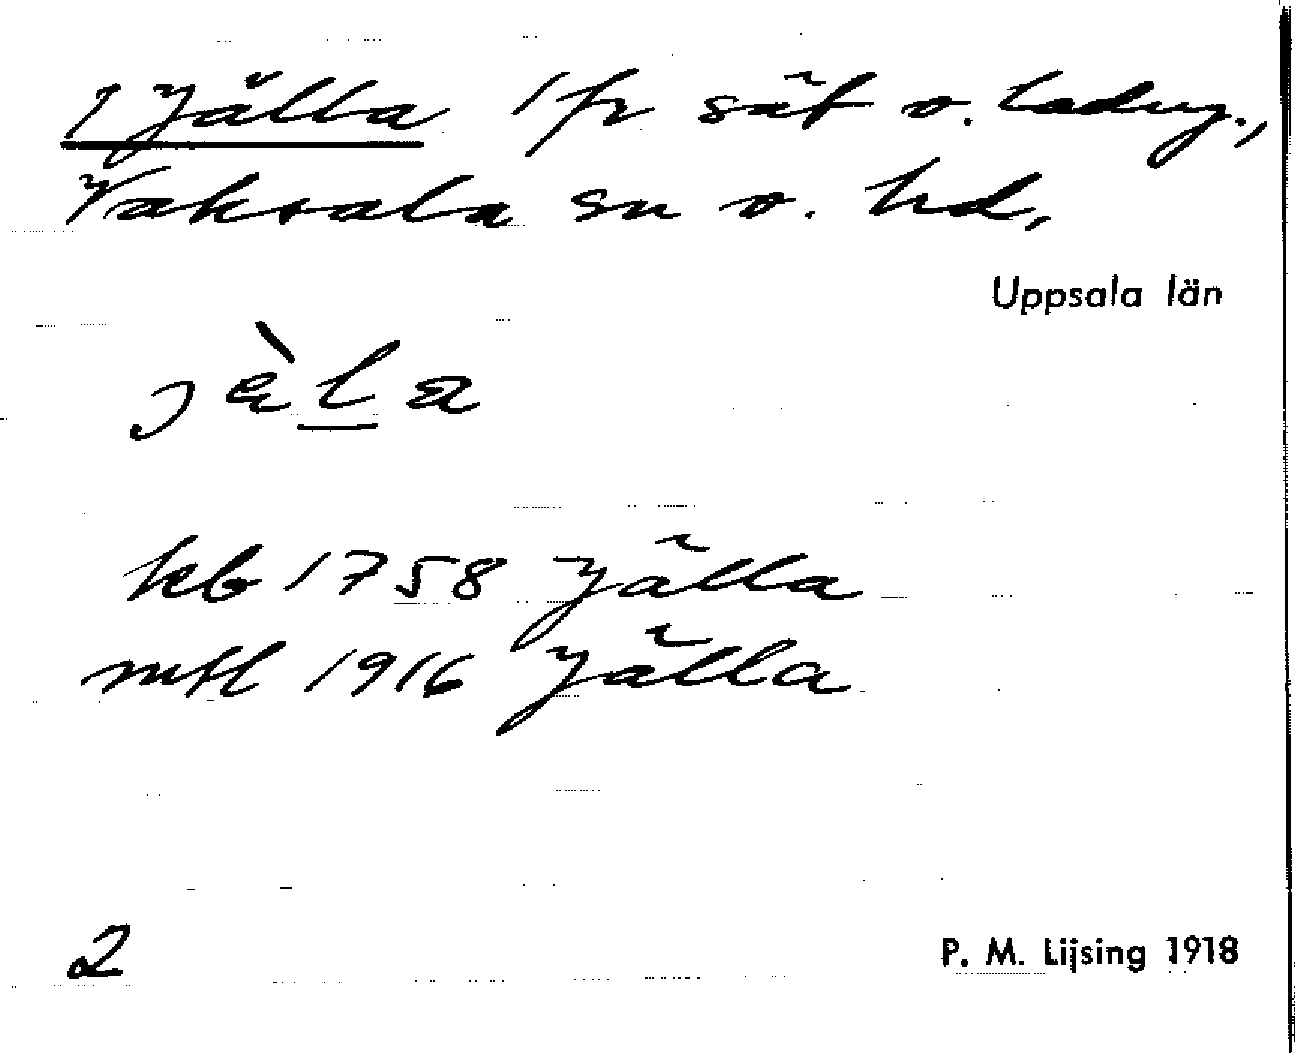 1 Jälla 1 fr sät o. ladug.,
Vaksala sn o. hd,
Uppsala län
jèla
kb 1758 Jälla
mtl 1916 Jälla
2
P. M. Lijsing 1918